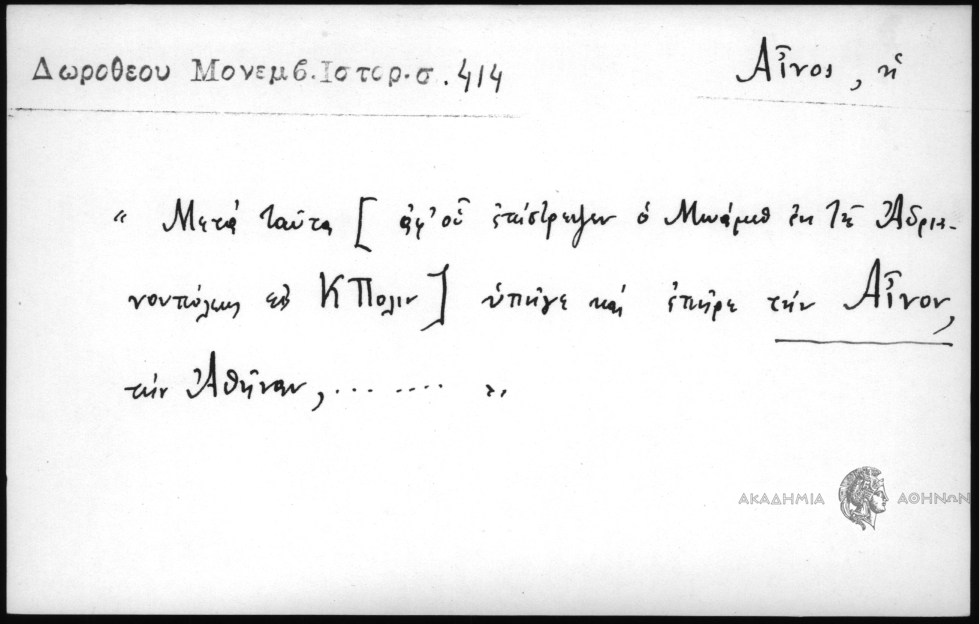 Δωροθεου Μονεμβ. Ιστορ. σ. 414
Αἶνος, ἡ
“ Μετά ταῦτα [ ἀφ' οὗ ἐπέστρεψεν ὁ Μωάμεθ ἐκ τῆς Ἀδρια-
νουπόλεως εἰς ΚΠολιν ] ὑπῆγε καί ἐπῆρε τήν Αἶνον,
τήν Ἀθῆναν, ... .... ”.
ΑΚΑΔΗΜΙΑ ΑΘΗΝΩΝ